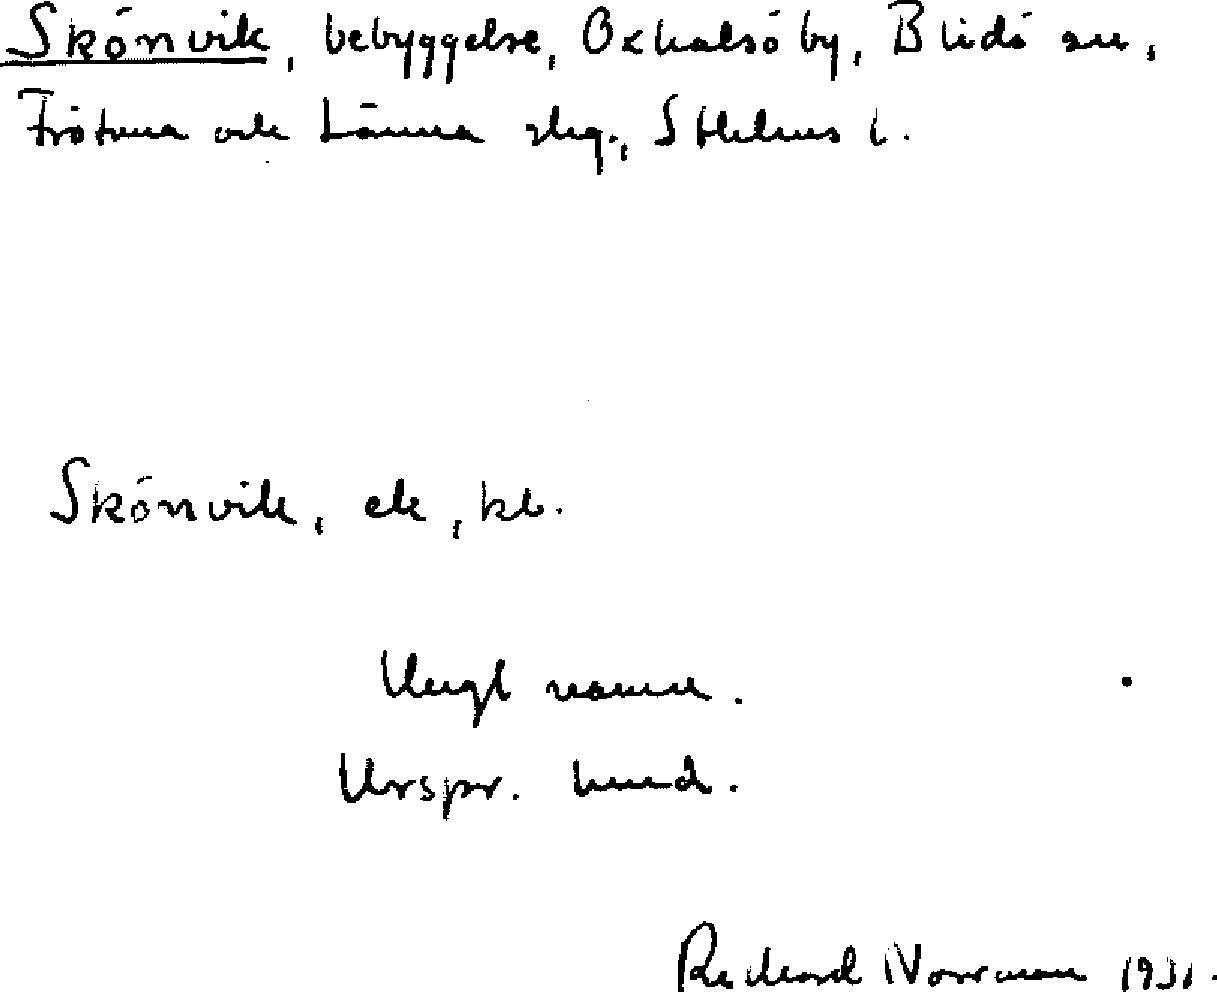 Skönvik, bebyggelse, Oxhalsö by, Blidö sn,
Frötuna och Länna skg., Sthlms l.
Skönvik, ek, kb.
Ungt namn.
Urspr. hund.
Richard Norrman 1931.